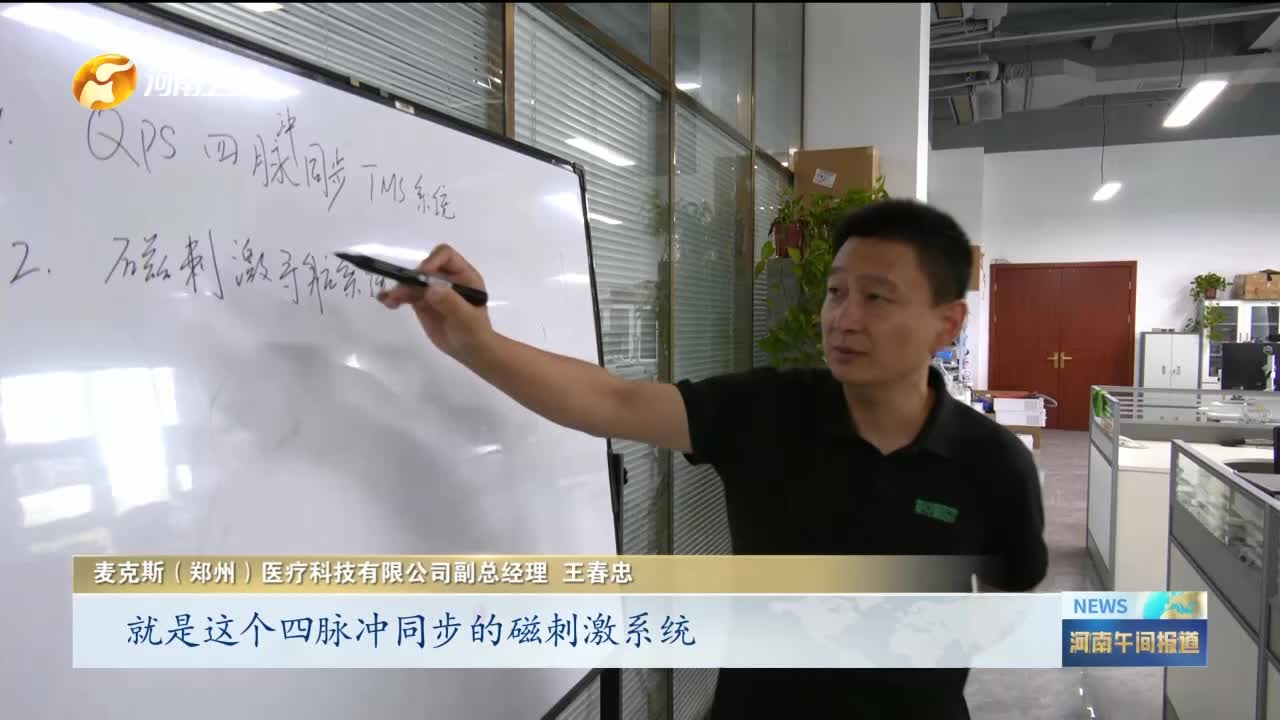 QPS 四脉冲同步 TMS系统
2. 磁刺激导航系统
麦克斯（郑州）医疗科技有限公司副总经理 王春忠
就是这个四脉冲同步的磁刺激系统
NEWS
河南午间报道